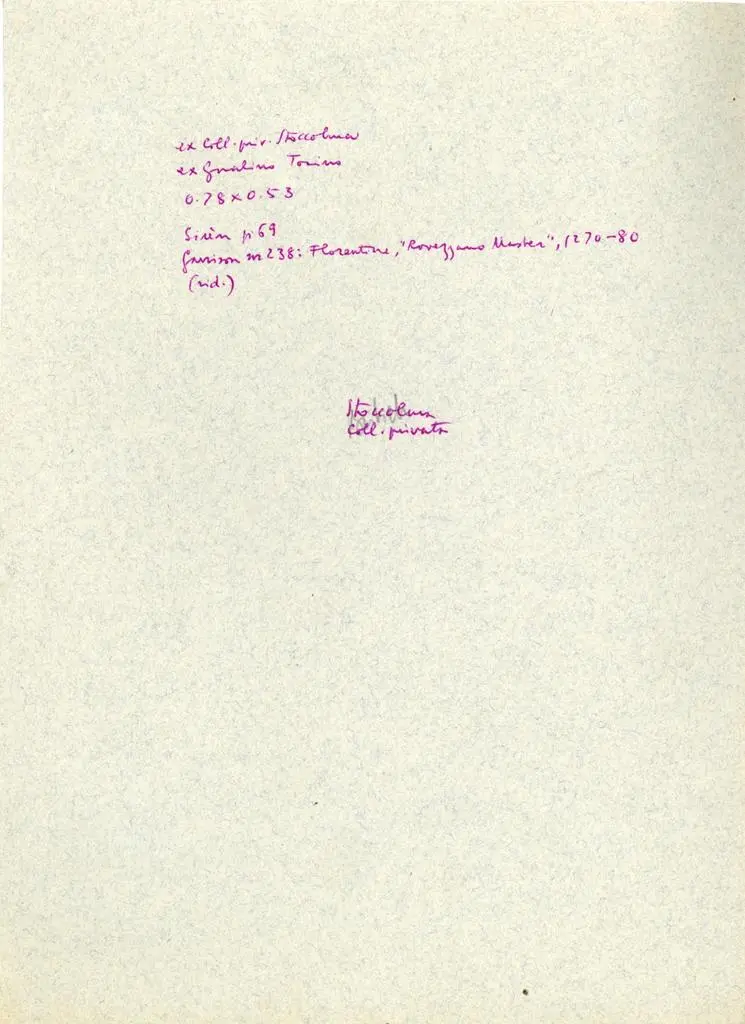 ex Coll. priv. Stoccolma
ex Gualino Torino
0.78 x 0.53
Sirèn p 69
Garrison nr 238: Florentine, "Rovezzano Master", 1270-80
(rid.)
Stoccolma
Coll. privata